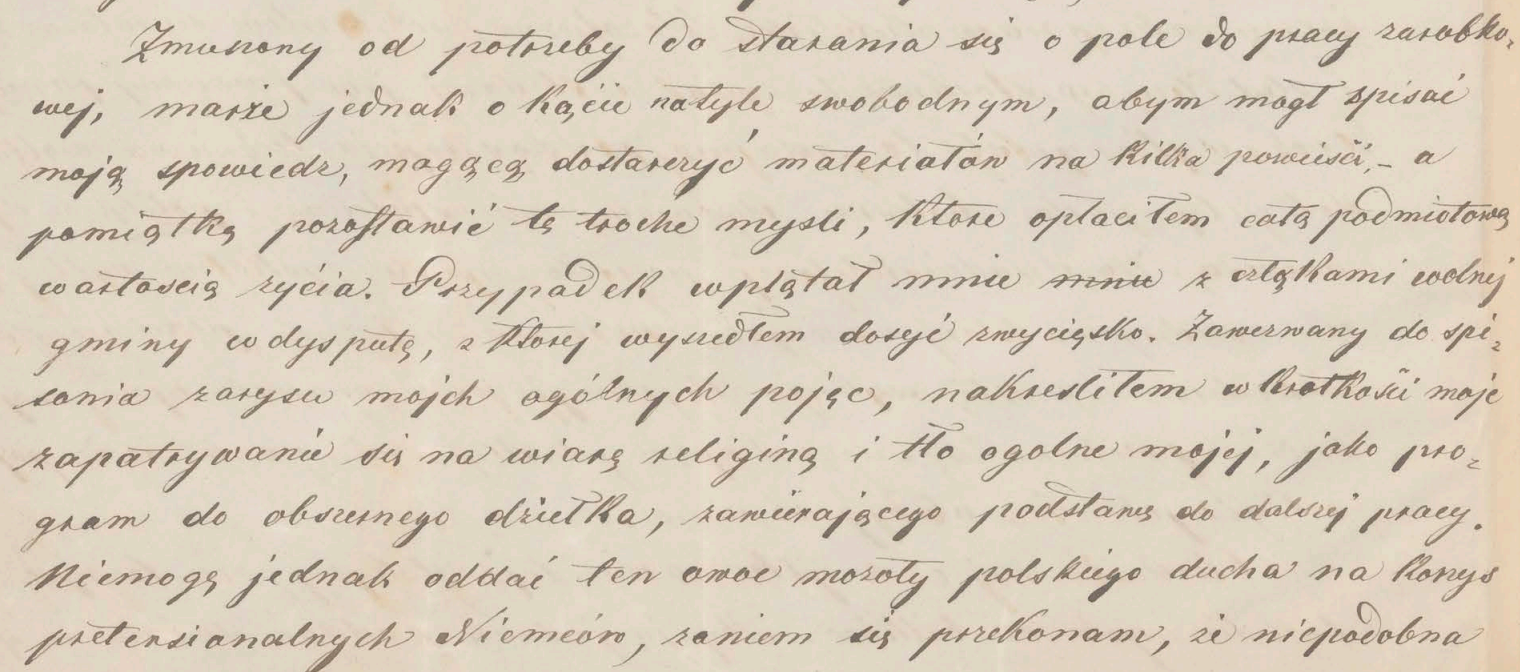 Zmuszony od potrzeby do starania się o pole do pracy zarobko-
wej, marże jednak o kąćie natyle swobodnym, abym mogł spisać
moją spowiedz, mogącą dostarczyć materiałów na kilka powieści, – a
pamiątką pozostawić tę troche mysli, ktore opłaciłem całą podmiotową
wartoscią zyćia. Przypadek wplątał mnie mnie z człąkami wolnej
gminy w dysputę, z ktorej wyszedłem dosyć zwycięsko. Zawezwany do spi-
sania zarysu mojch ogólnych pojęc, nakresliłem w krotkości moje
zapatrywanie się na wiarę religiną i tło ogolne mojej, jako pro-
gram do obszernego dziełka, zawierającego podstawę do dalszej pracy.
Niemogę jednak oddać ten owoc mozoły polskiego ducha na korzys
pretensionalnych Niemców, zaniem się przekonam, że niepodobna